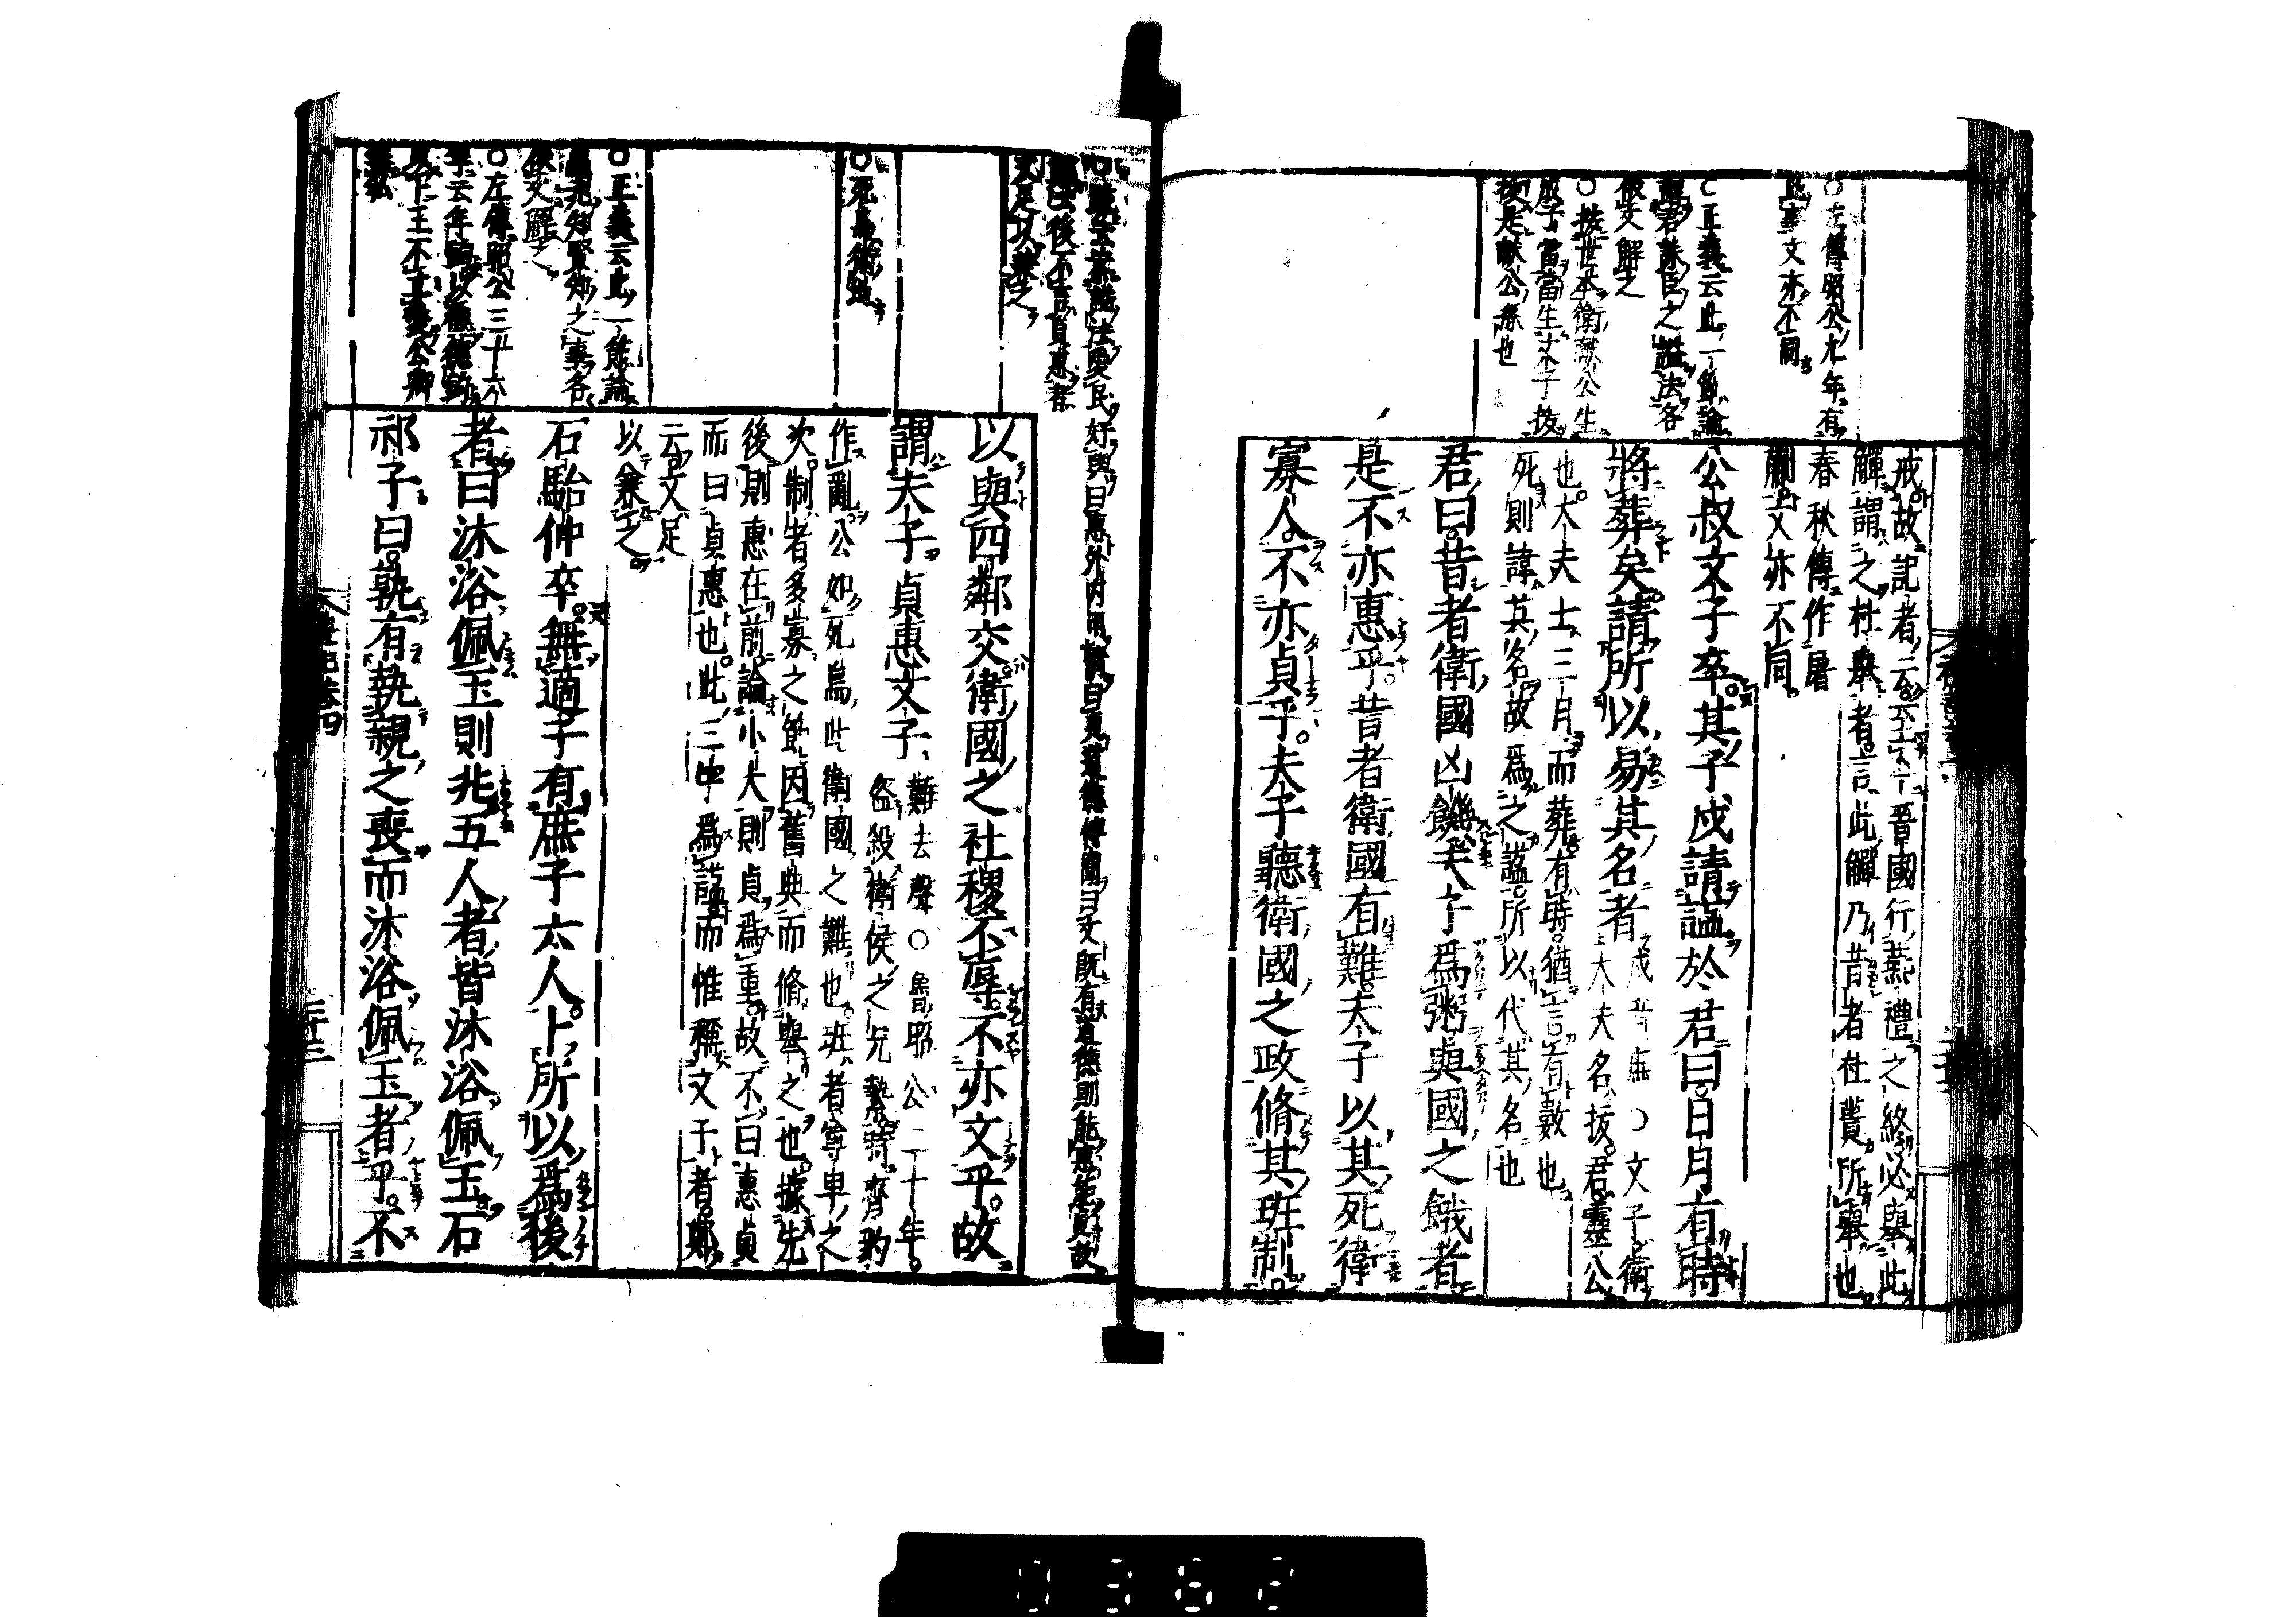 ○左傳昭公九年有
此事文亦不同
○正義云此一節論
君誄臣之謚法各
依文解之
○按世本衛獻公生
成子當當生文子拔
拔是獻公孫也
戒故記者云至于今晉國行燕禮之終必舉此
觶謂之杜舉者言此觶乃昔者杜蕢所舉也
春秋傳作屠
蒯文亦不同
公叔文子卒其子戍請謚於君曰日月有時
將葬矣請所以易其名者
戍音庶○文子衛
大夫名拔君靈公
也大夫士三月而葬有時猶言有數也
死則諱其名故爲之謚所以代其名也
君曰昔者衛國凶饑夫子爲粥與國之餓者
是不亦惠乎昔者衛國有難夫子以其死衛
寡人不亦貞乎夫子聽衛國之政脩其班制
謚法愛民好與曰惠外內用情曰貞道德博聞曰文既有道德則能惠能貞故
後不言貞惠者
文足以兼之
○死爲衛
○正義云此一節論
依文解之
○左傳昭公二十六
年云年鈞以德德鈞
以卜王不立愛公卿
無私
以與四鄰交衛國之社稷不辱不亦文乎故
謂夫子貞惠文子
難去聲○魯昭公二十年
盜殺衛侯之兄縶時齊豹
作亂公如死鳥此衛國之難也班者尊卑之
次制者多寡之節因舊典而脩舉之也據先
後則惠在前論小大則貞爲重故不曰惠貞
而曰貞惠也此三字爲謚而惟稱文子者鄭
云文足
以兼之
石駘仲卒無適子有庶子六人卜所以爲後
者曰沐浴佩玉則兆五人者皆沐浴佩玉石
祁子曰孰有執親之喪而沐浴佩玉者乎不
禮記卷四
0362